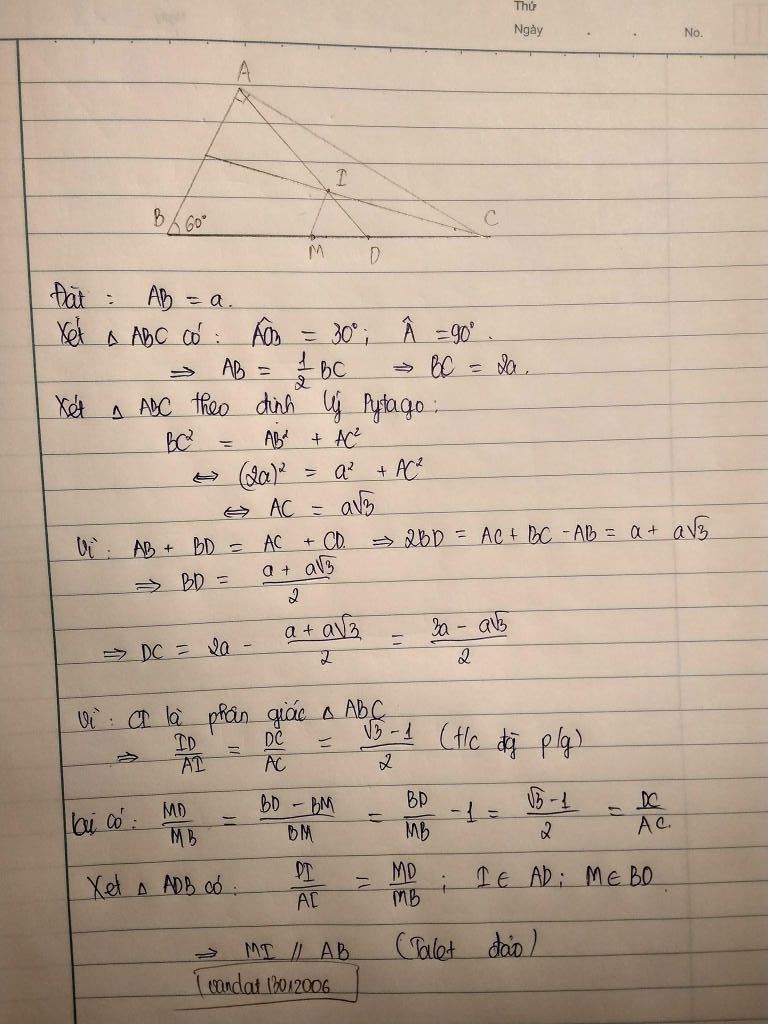 Thứ
Ngày . . No.
A
I
B 60° C
M D
Đặt : AB = a.
Xét Δ ABC có : ACB = 30° ; Â = 90° .
⇒ AB = 1/2 BC ⇒ BC = 2a.
Xét Δ ABC theo định lý Pytago :
BC² = AB² + AC²
⇔ (2a)² = a² + AC²
⇔ AC = a√3
Vì : AB + BD = AC + CD ⇒ 2BD = AC + BC - AB = a + a√3
⇒ BD = (a + a√3)/2
⇒ DC = 2a - (a + a√3)/2 = (3a - a√3)/2
Vì : CI là phân giác Δ ABC
⇒ ID/AI = DC/AC = (√3 - 1)/2 (t/c đg p/g)
lại có : MD/MB = (BD - BM)/BM = BD/MB - 1 = (√3 - 1)/2 = DC/AC
Xét Δ ADB có : DI/AI = MD/MB ; I ∈ AD ; M ∈ BD
⇒ MI // AB (Talet đảo)
vandat13012006